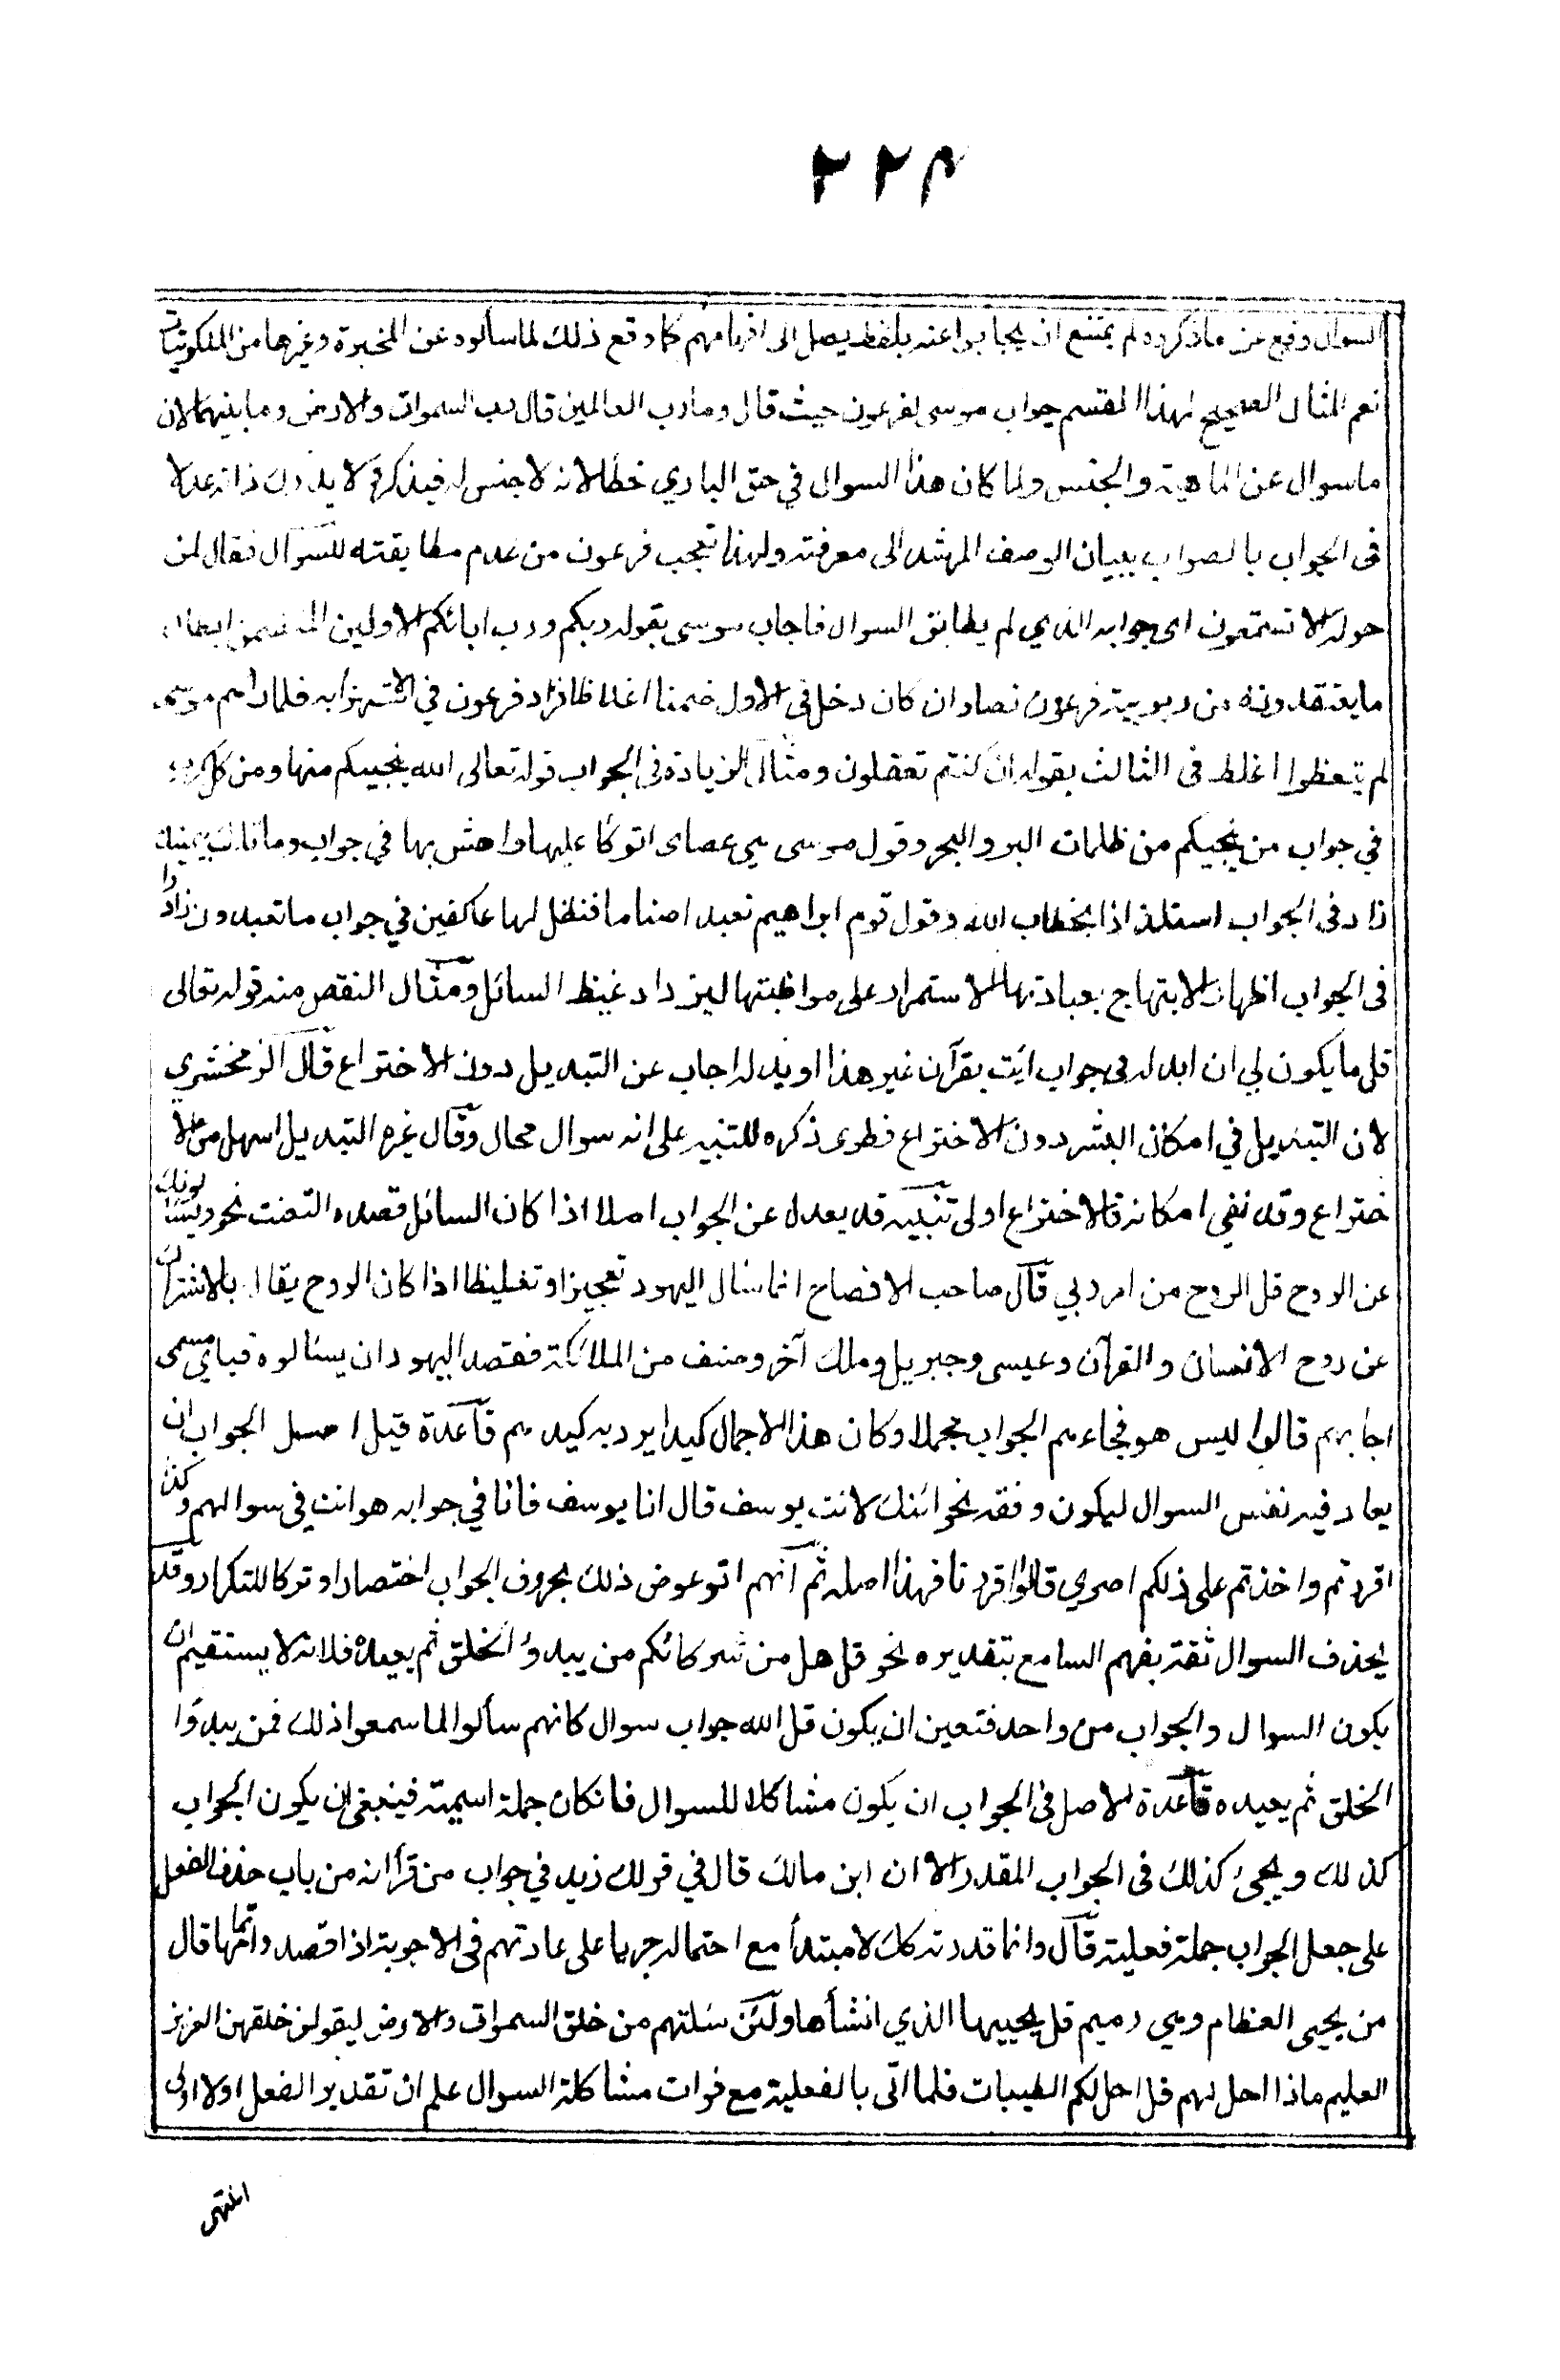 ٢٢٣
السوال وقع عن ما ذكروه لم يمتنع ان يجابوا عنه بلفظ يصل الى افهامهم كما وقع ذلك لما سألوه عن المجرة وغيرها من الملكوتيات
نعم المثال الصحيح لهذا القسم جواب موسى لفرعون حيث قال وما رب العالمين قال رب السموات والارض وما بينهما لان
ما سوال عن الماهية والجنس ولما كان هذا السوال في حق الباري خطأ لانه لا جنس له فيذكر ولا يدرك ذاته عدلا
فى الجواب بالصواب ببيان الوصف المرشد الى معرفته ولهذا تعجب فرعون من عدم مطابقته للسوال فقال لمن
حوله الا تستمعون اى جوابه الذي لم يطابق السوال فاجاب موسى بقوله ربكم ورب ابائكم الاولين المتضمن ابطال
ما يعتقدونه من ربوبية فرعون نصا وان كان دخل فى الاول ضمنا اغلاظا فزاد فرعون في الاستهزا به فلما راهم موسى
لم يتعظوا اغلط فى الثالث بقوله ان كنتم تعقلون ومثال الزيادة فى الجواب قوله تعالى الله ينجيكم منها ومن كل كرب
في جواب من ينجيكم من ظلمات البر والبحر وقول موسى هي عصاى اتوكا عليها واهش بها في جواب وما تلك بيمينك
زاد فى الجواب استلذاذا بخطاب الله وقول قوم ابراهيم نعبد اصناما فنظل لها عاكفين في جواب ما تعبدون زادوا
فى الجواب اظهار الابتهاج بعبادتها والاستمرار على مواظبتها ليزداد غيظ السائل ومثال النقص منه قوله تعالى
قل ما يكون لي ان ابدله فى جواب ائت بقرآن غير هذا او بدله اجاب عن التبديل دون الاختراع قال الزمخشري
لان التبديل في امكان البشر دون الاختراع فطوى ذكره للتنبيه على انه سوال محال وقال غيره التبديل اسهل من الا
ختراع وقد نفى امكانه فالاختراع اولى تنبيه قد يعدل عن الجواب اصلا اذا كان السائل قصده التعنت نحو ويسئلونك
عن الروح قل الروح من امر ربي قال صاحب الافصاح انما سال اليهود تعجيزا وتغليظا اذا كان الروح يقال بالاشتراك
عن روح الانسان والقرآن وعيسى وجبريل وملك آخر وصنف من الملائكة فقصد اليهود ان يسئالوه فباي مسمى
اجابهم قالوا ليس هو فجاءهم الجواب مجملا وكان هذا الاجمال كيدا يرد به كيدهم قاعدة قيل اصل الجواب ان
يعاد فيه نفس السوال ليكون وفقه نحو ائنك لانت يوسف قال انا يوسف فانا في جوابه هو انت في سوالهم وكذا
اقررتم واخذتم على ذلكم اصري قالوا اقررنا فهذا اصله ثم انهم اتو عوض ذلك بحروف الجواب اختصارا وتركا للتكرار وقد
يحذف السوال ثقة بفهم السامع بتقديره نحو قل هل من شركائكم من يبدؤ الخلق ثم يعيده فلانه لا يستقيم ان
يكون السوال والجواب من واحد فتعين ان يكون قل الله جواب سوال كانهم سألوا لما سمعوا ذلك فمن يبدؤا
الخلق ثم يعيده قاعدة الاصل فى الجواب ان يكون مشاكلا للسوال فان كان جملة اسمية فينبغى ان يكون الجواب
كذلك ويجيء كذلك فى الجواب المقدر الا ان ابن مالك قال في قولك زيد في جواب من قرأ انه من باب حذف الفعل
على جعل الجواب جملة فعلية قال وانما قدرته كك لا مبتدأ مع احتماله جريا على عادتهم فى الاجوبة اذا قصدوا تمامها قال
من يحيى العظام وهي رميم قل يحييها الذي انشأها ولئن سئلتهم من خلق السموات والارض ليقولن خلقهن العزيز
العليم ماذا احل لهم قل احل لكم الطيبات فلما اتى بالفعلية مع فوات مشاكلة السوال علم ان تقدير الفعل اولا اولى
انتهى